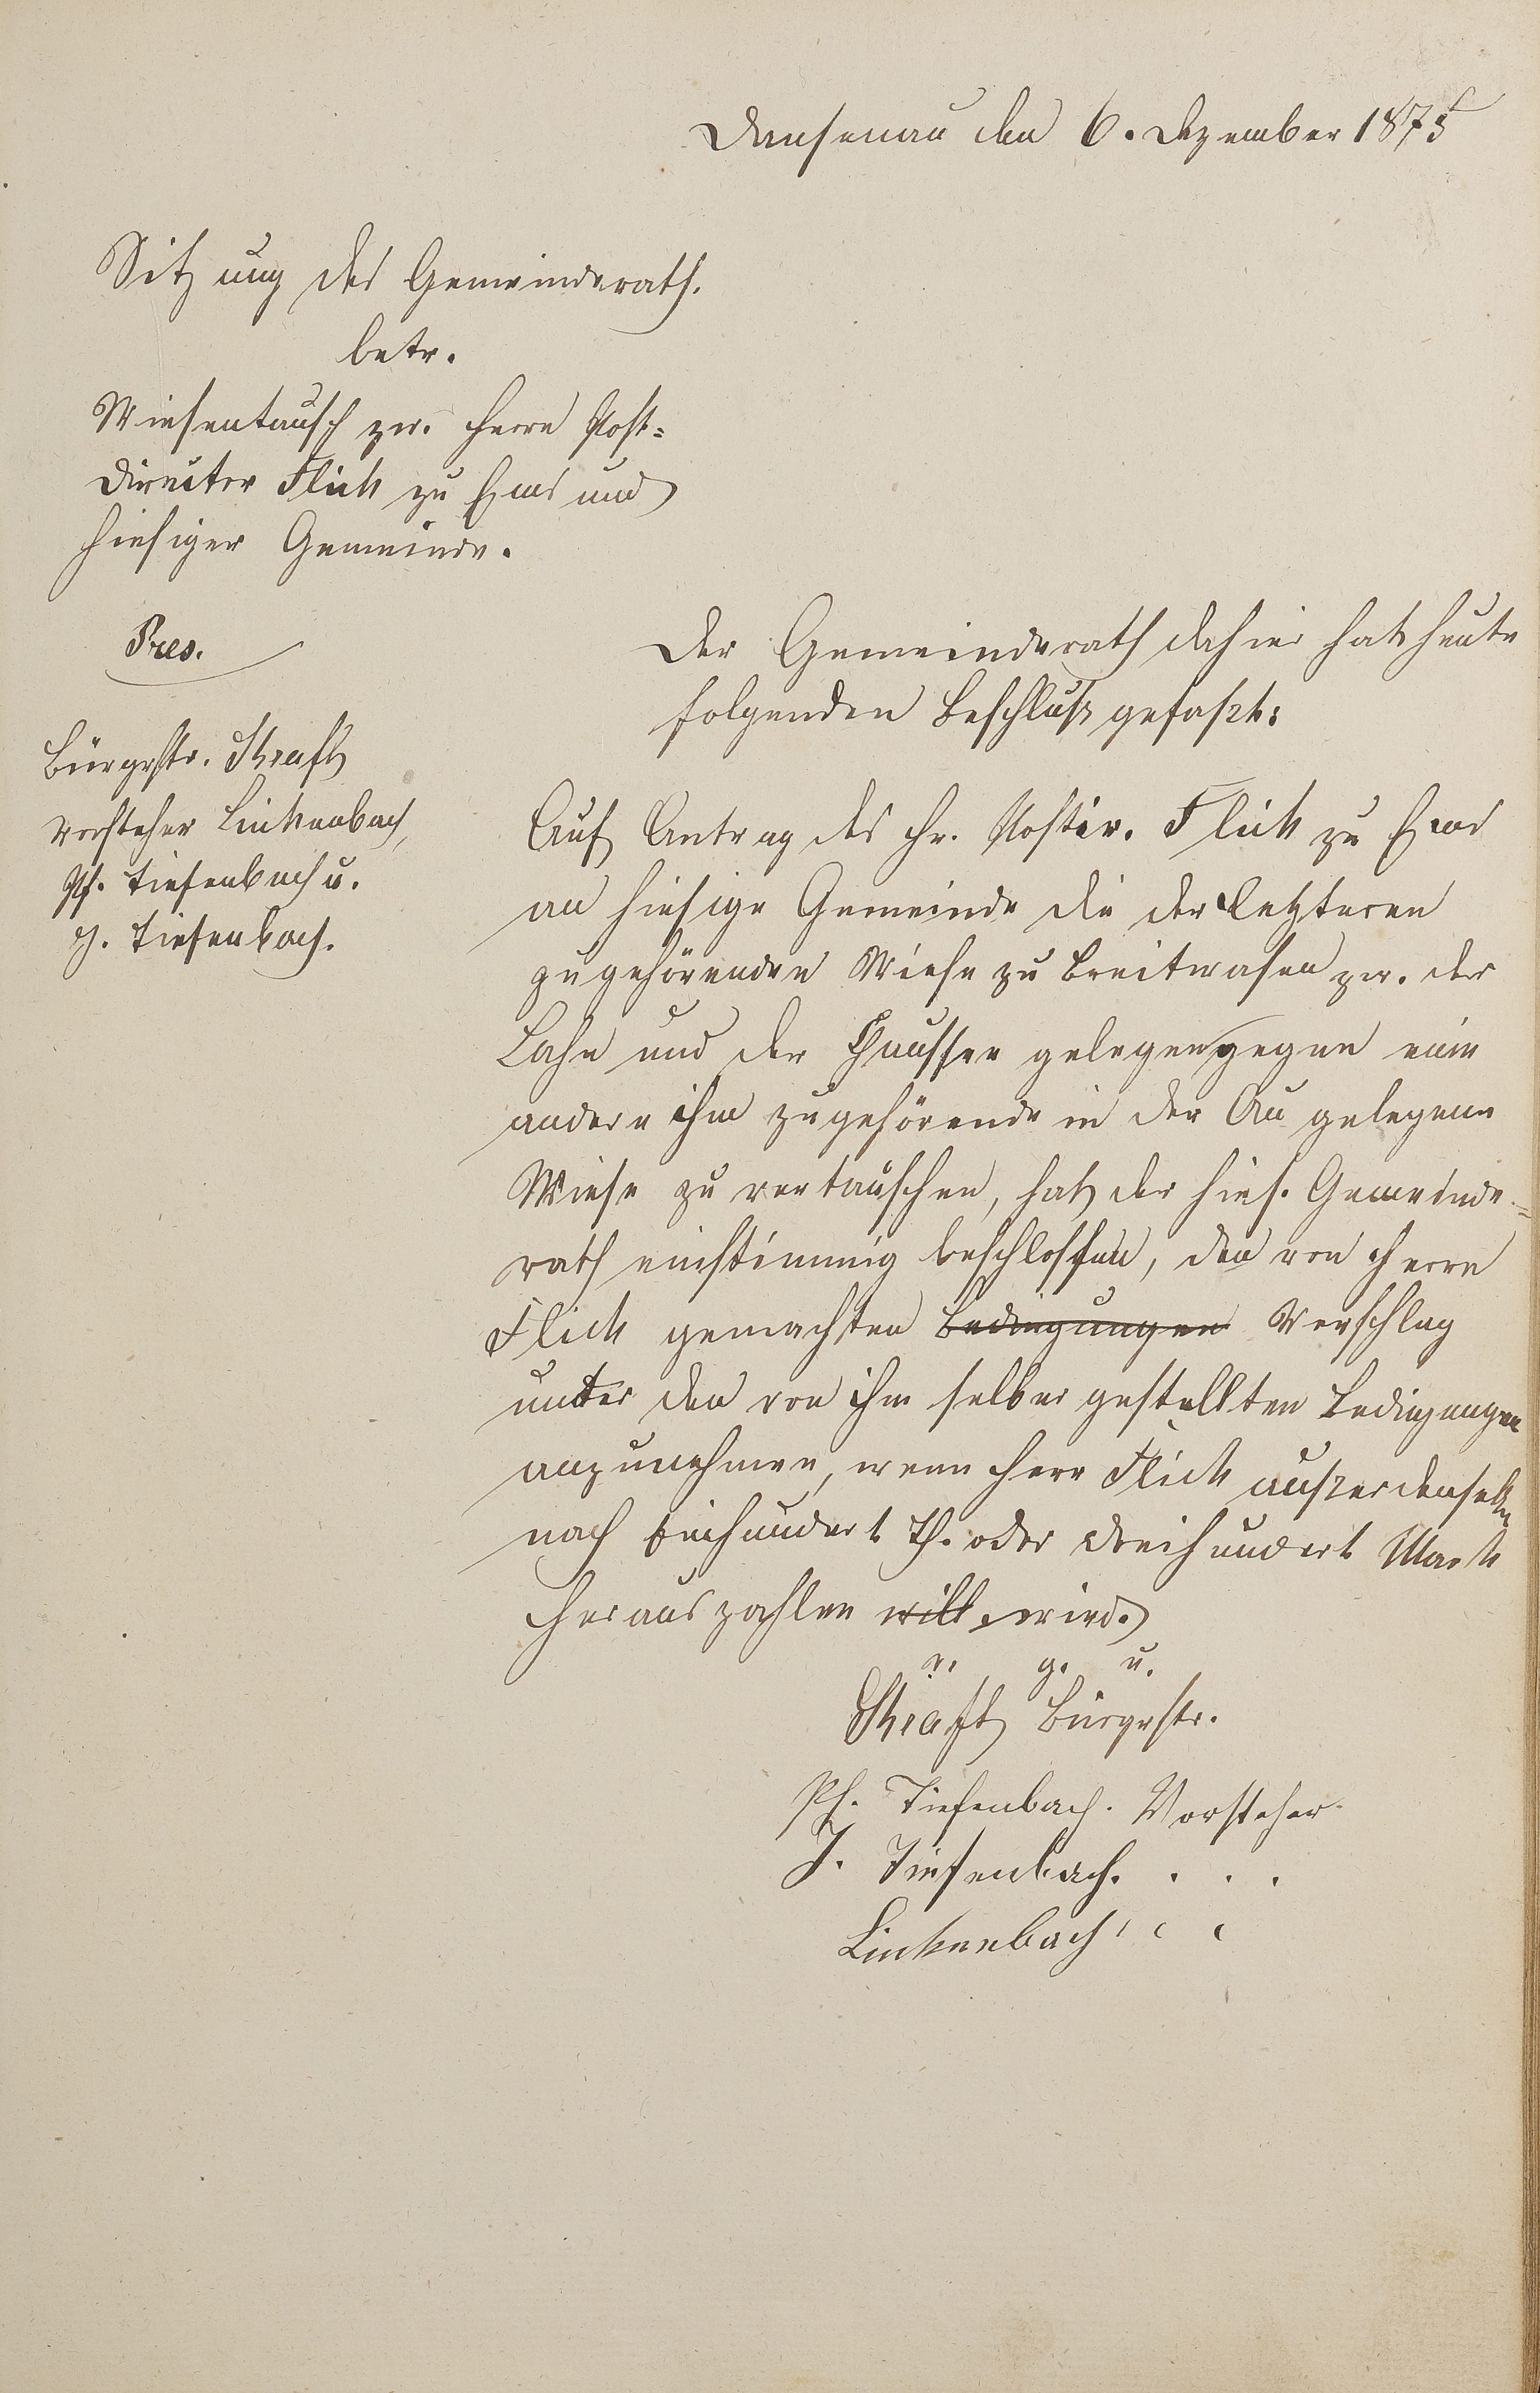 Dausenau den 6. Dezember 1875
Sitzung des Gemeinderath.
betr.
Wiesentausch zw. Herrn Post=
Director Flick zu Ems und
hiesiger Gemeinde.
Pres.
Bürgrstr. Kraft
Vorsteher Linkenbach,
Ph. Tiefenbach u.
J. Tiefenbach.
Der Gemeinderath dahier hat heute
folgenden Beschluß gefaßt:
Auf Antrag des Hr. Postdir. Flick zu Ems
an hiesige Gemeinde die der letzteren
zugehörenden Wiese zu Breitwasen zw. der
Lahn und der Chaussee gelegen gegen eine
andere ihm zugehörende in der Au gelegene
Wiese zu vertauschen, hat der hies. Gemeinde=
rath einstimmig beschlossen, den von Herrn
Flick gemachten Bedingungen Vorschlag
unter den von ihm selber gestellten Bedingungen
anzunehmen, wenn Herr Flick außer denselben
noch Einhundert Th. oder Dreihundert Mark
herauszahlen will wird.
v. g. u.
Kraft Bürgrstr.
Ph. Tiefenbach. Vorsteher
J. Tiefenbach. . . .
Linkenbach